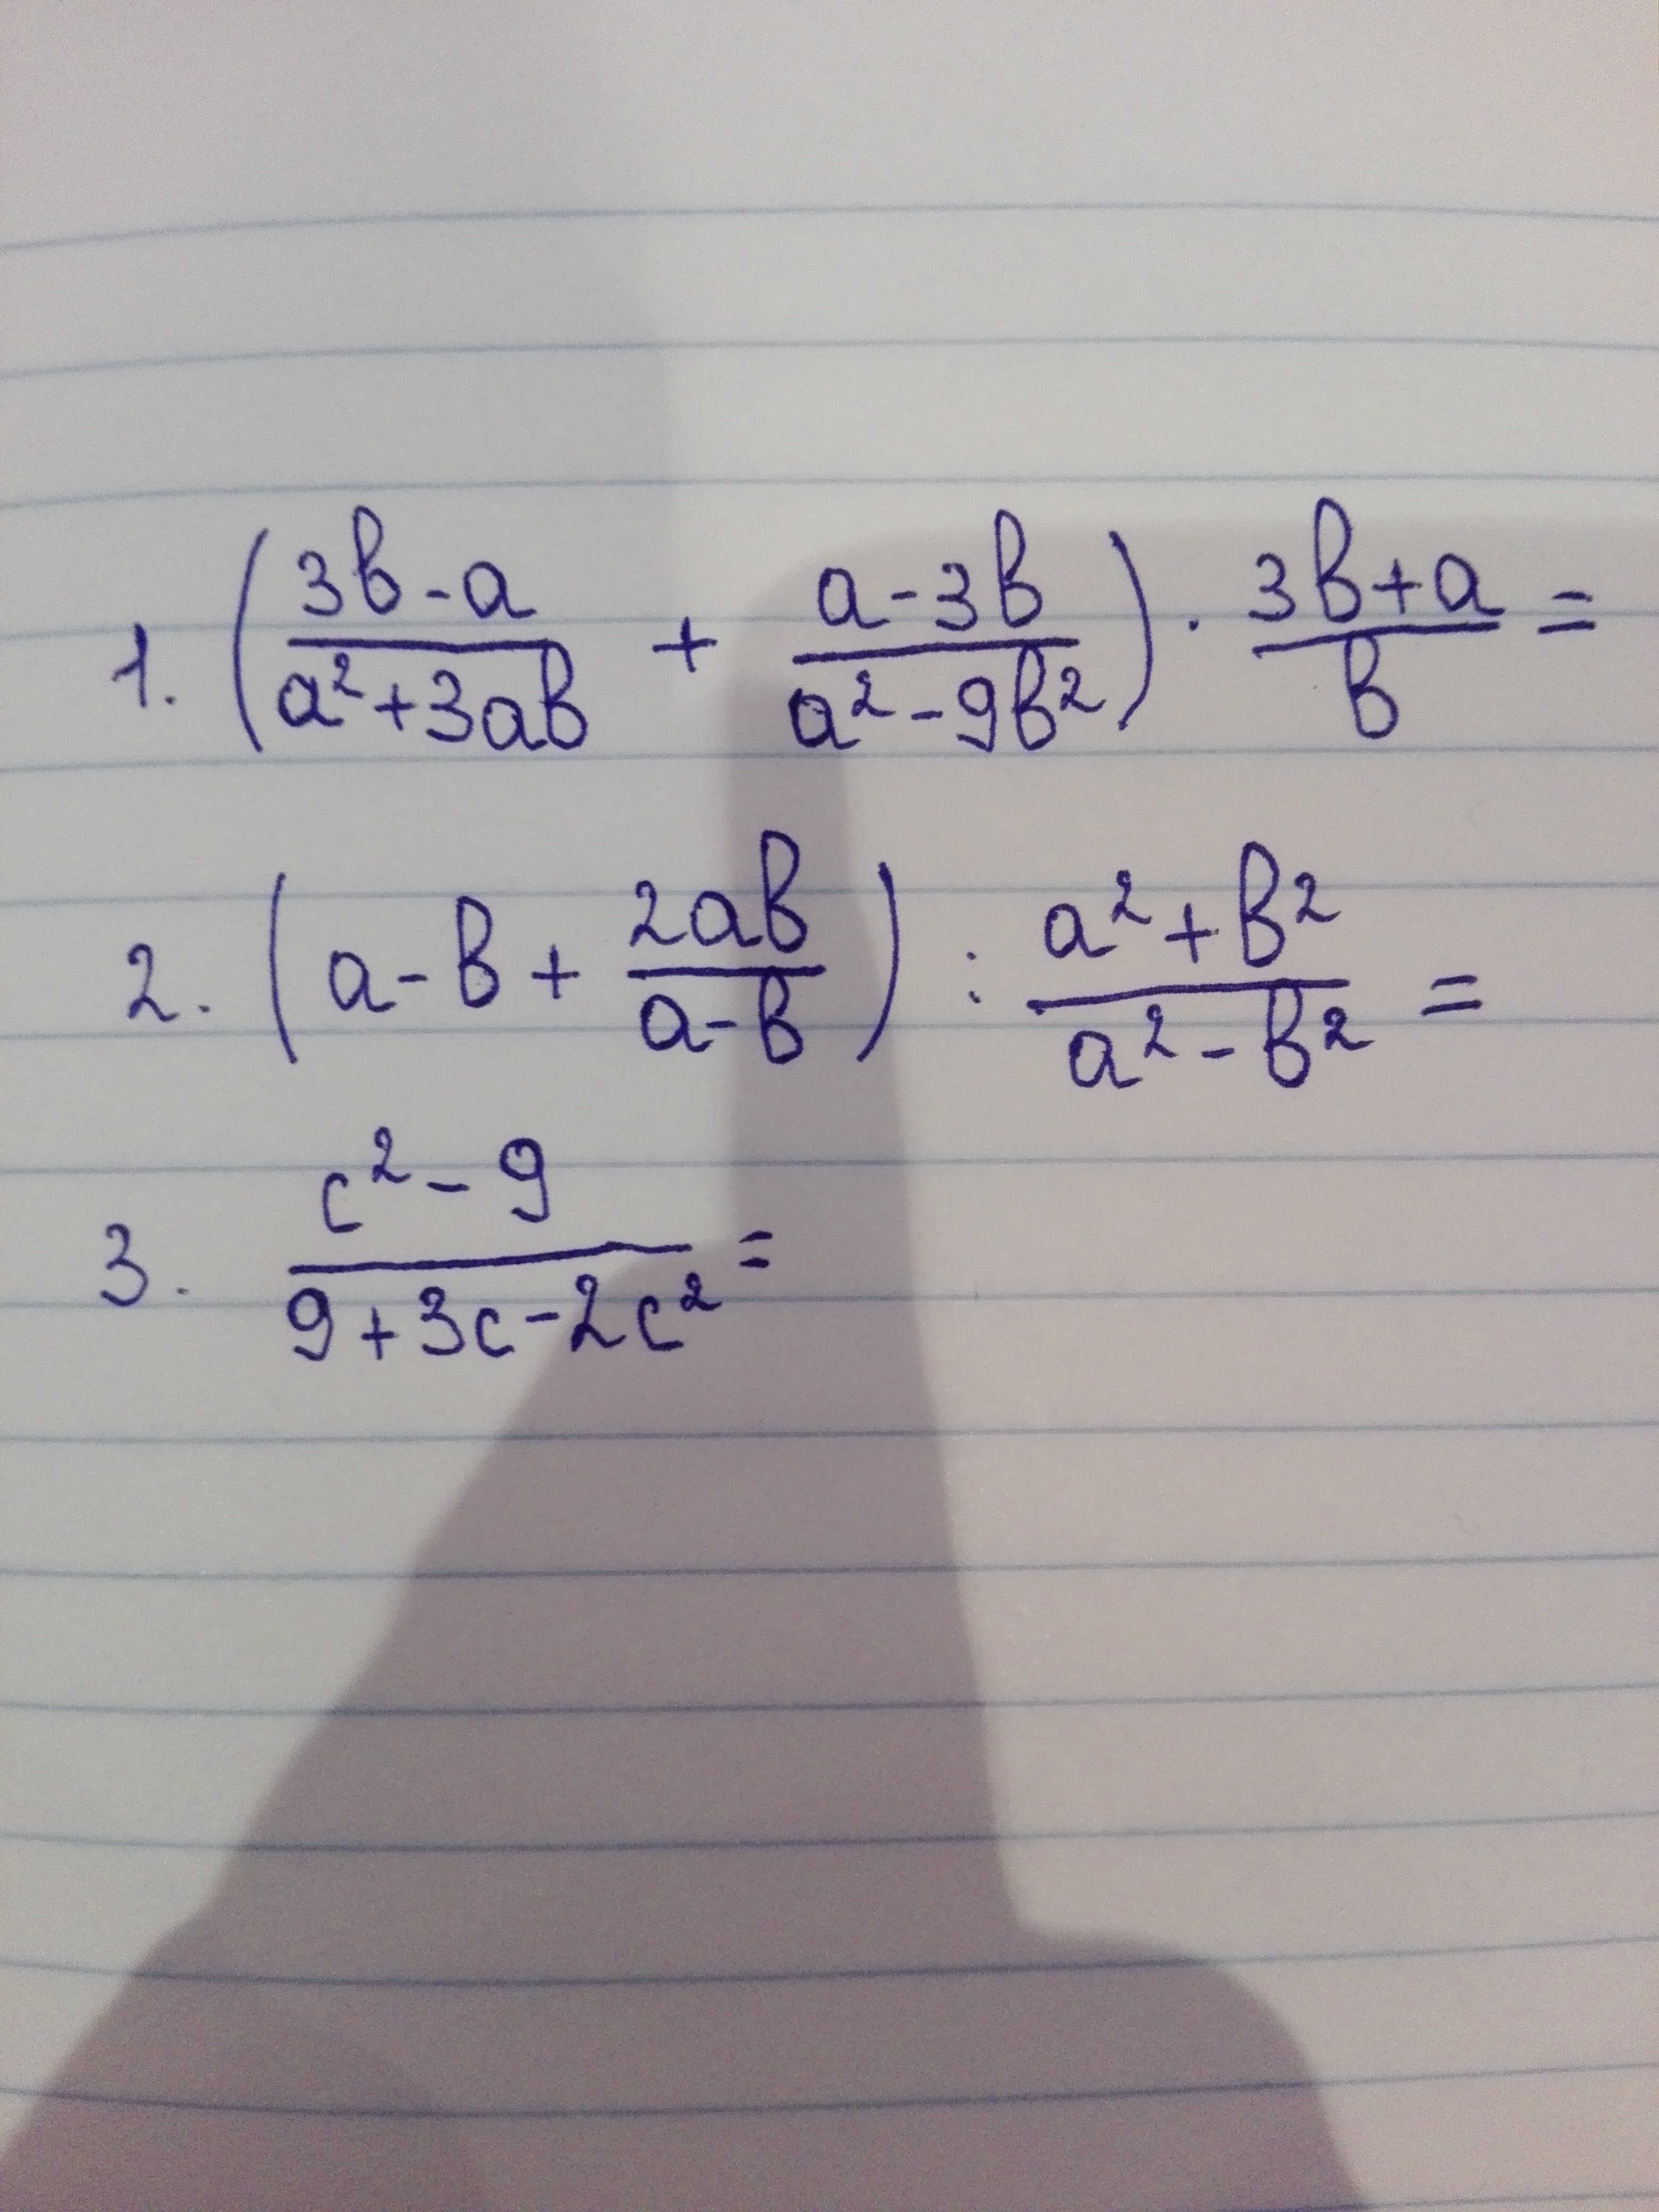 1. ( (3b-a)/(a²+3ab) + (a-3b)/(a²-9b²) ) · (3b+a)/b =
2. ( a-b + 2ab/(a-b) ) : (a²+b²)/(a²-b²) =
3. (c²-9)/(9+3c-2c²) =